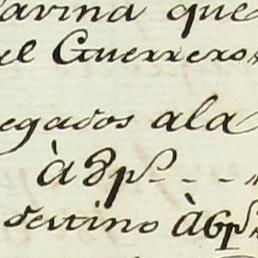 avina que
el Guerrero
egados ala
à 3p.s - - -
destino à 6p.s